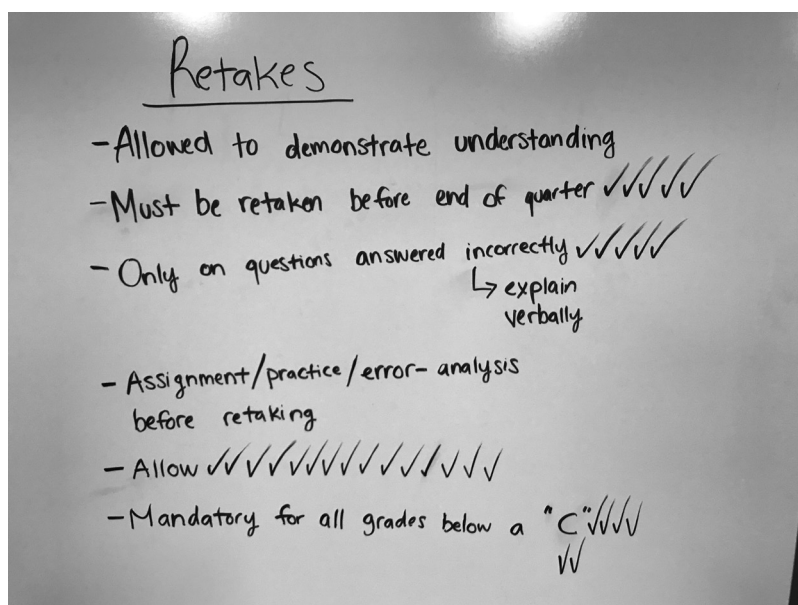 Retakes
- Allowed to demonstrate understanding
- Must be retaken before end of quarter ✓✓✓✓✓
- Only on questions answered incorrectly ✓✓✓✓✓
↳ explain
verbally
- Assignment/practice/error-analysis
before retaking
- Allow ✓✓✓✓✓✓✓✓✓✓✓✓✓✓
- Mandatory for all grades below a "C" ✓✓✓✓
✓✓